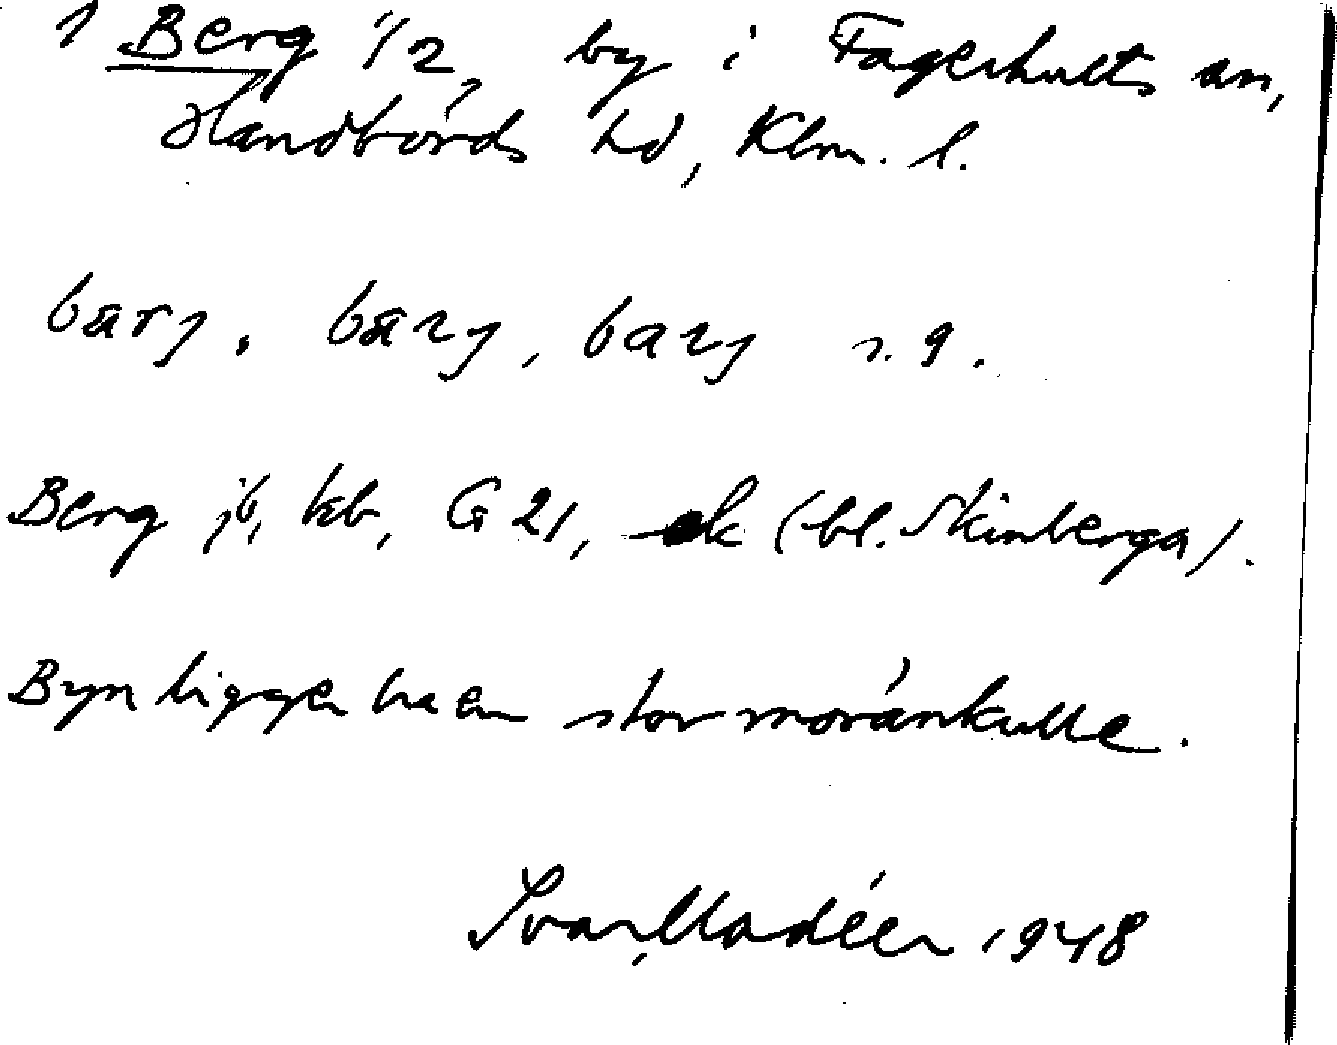 1 Berg 1/2, by i Fagerhults sn,
Handbörds hd, Klm. l.
bärj, bärj, barj s. g.
Berg jb, kb, G 21, ek (bl. Skinberga).
Byn ligger på en stor moränkulle.
Ivar Modéer 1948